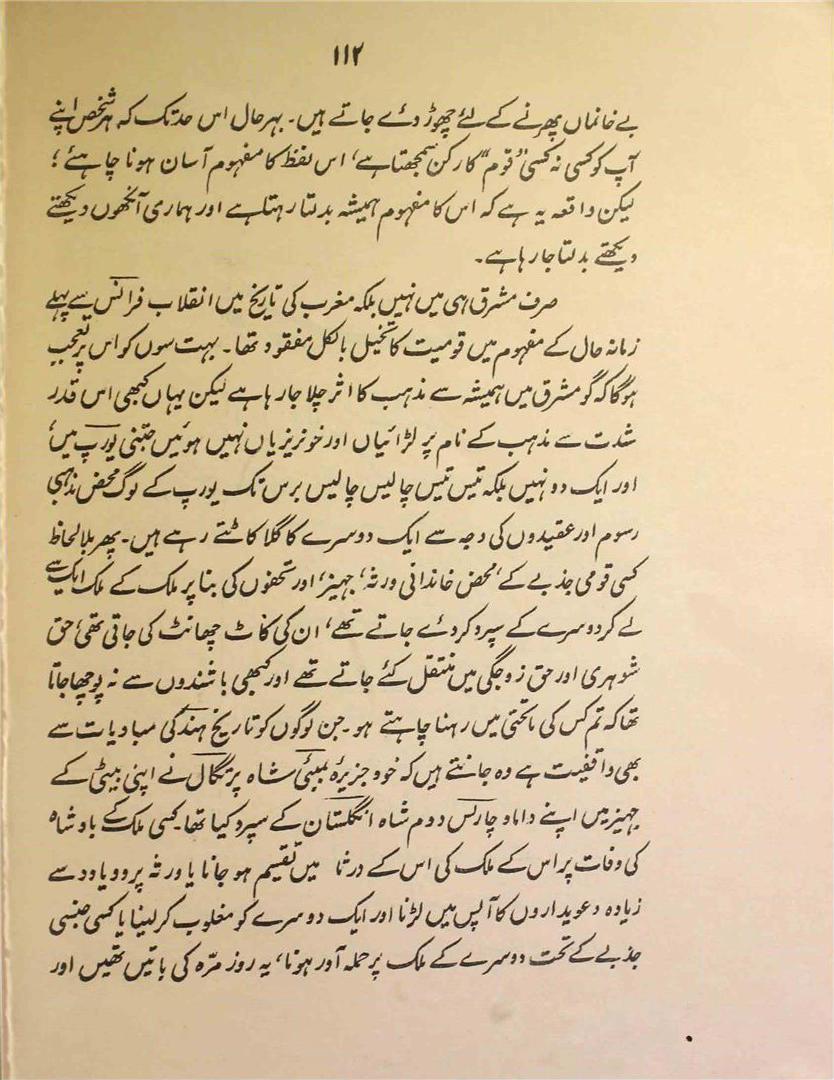 ۱۱۲
بے خانماں پھرنے کے لئے چھوڑ دئے جاتے ہیں۔ بہرحال اس حد تک کہ ہر شخص اپنے
آپ کو کسی نہ کسی "قوم" کا رکن سمجھتا ہے، اس لفظ کا مفہوم آسان ہونا چاہئے؛
لیکن واقعہ یہ ہے کہ اس کا مفہوم ہمیشہ بدلتا رہتا ہے اور ہماری آنکھوں دیکھتے
دیکھتے بدلتا جا رہا ہے۔
صرف مشرق ہی میں نہیں بلکہ مغرب کی تاریخ میں انقلاب فرانس سے پہلے
زمانہ حال کے مفہوم میں قومیت کا تخیل بالکل مفقود تھا۔ بہت سوں کو اس پر تعجب
ہوگا کہ گو مشرق میں ہمیشہ سے مذہب کا اثر چلا جا رہا ہے لیکن یہاں کبھی اس قدر
شدت سے مذہب کے نام پر لڑائیاں اور خونریزیاں نہیں ہوئیں جتنی یورپ میں،
اور ایک دو نہیں بلکہ تیس تیس چالیس چالیس برس تک یورپ کے لوگ محض مذہبی
رسوم اور عقیدوں کی وجہ سے ایک دوسرے کا گلا کاٹتے رہے ہیں۔ پھر بلا لحاظ
کسی قومی جذبے کے، محض خاندانی ورثہ، جہیز، اور تحفوں کی بنا پر ملک کے ملک ایک سے
لے کر دوسرے کے سپرد کر دئے جاتے تھے، ان کی کاٹ چھانٹ کی جاتی تھی، حق
شوہری اور حق زوجگی میں منتقل کئے جاتے تھے اور کبھی باشندوں سے نہ پوچھا جاتا
تھا کہ تم کس کی ماتحتی میں رہنا چاہتے ہو۔ جن لوگوں کو تاریخ ہند کی مبادیات سے
بھی واقفیت ہے وہ جانتے ہیں کہ خود جزیرۂ بمبئی شاہ پرتگال نے اپنی بیٹی کے
جہیز میں اپنے داماد چارلس دوم شاہ انگلستان کے سپرد کیا تھا۔ کسی ملک کے بادشاہ
کی وفات پر اس کے ملک کی اس کے ورثا میں تقسیم ہو جانا یا ورثہ پر دو یا دو سے
زیادہ دعویداروں کا آپس میں لڑنا اور ایک دوسرے کو مغلوب کر لینا یا کسی جنسی
جذبے کے تحت دوسرے کے ملک پر حملہ آور ہونا، یہ روز مرّہ کی باتیں تھیں اور